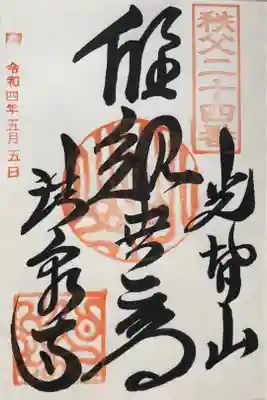 秩父二十四番
光智山
観世音
法泉寺
令和四年五月五日